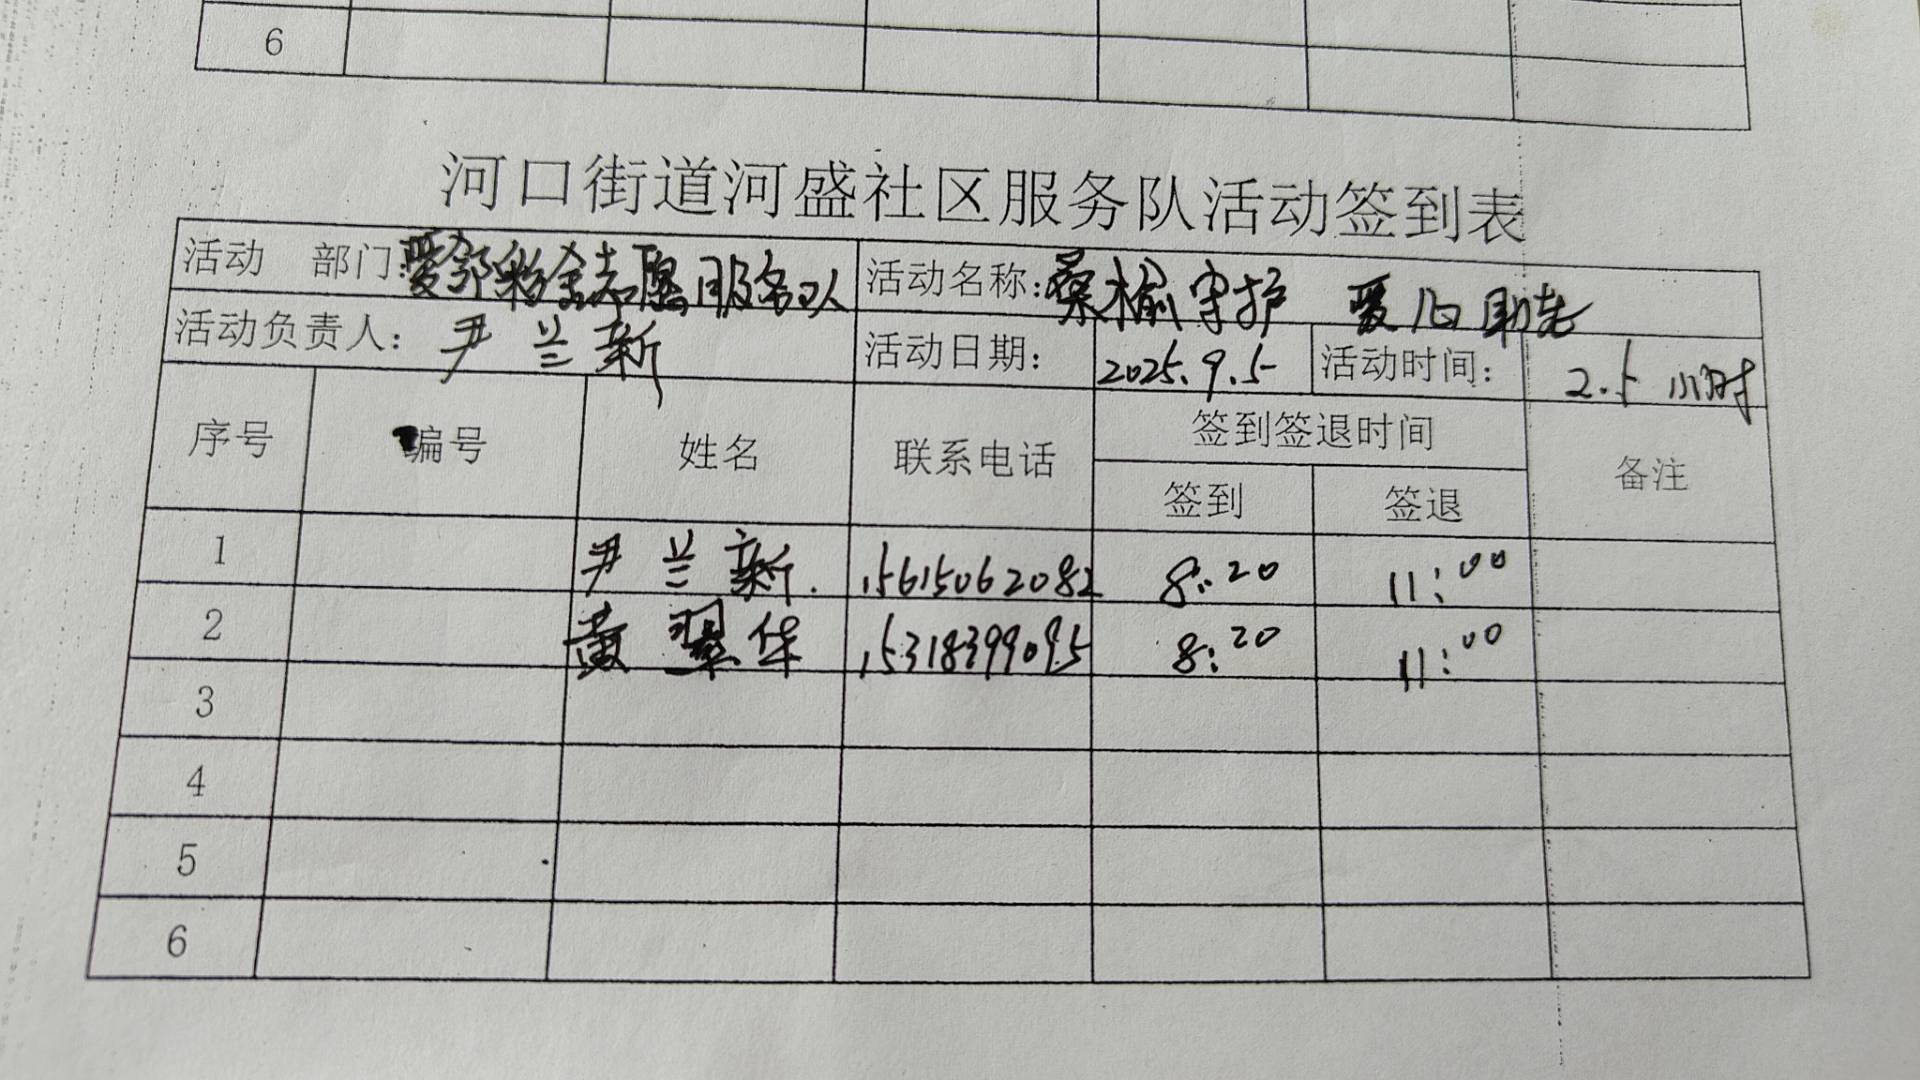 6
河口街道河盛社区服务队活动签到表
活动 部门:爱邻粉金志愿服务队 活动名称:桑榆守护 爱心助老
活动负责人: 尹兰新 活动日期: 2025.9.5 活动时间: 2.5小时
序号 编号 姓名 联系电话 签到签退时间 备注
签到 签退
1 尹兰新. 15615062082 8:20 11:00
2 黄翠华 15318399095 8:20 11:00
3
4
5
6